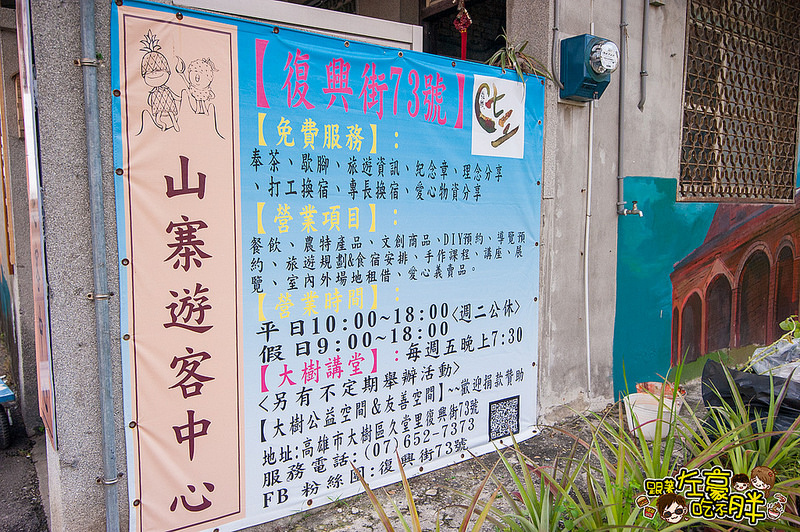 山寨遊客中心
【復興街73號】
【免費服務】:
奉茶、歇腳、旅遊資訊、紀念章、理念分享
、打工換宿、專長換宿、愛心物資分享
【營業項目】:
餐飲、農特產品、文創商品、DIY預約、導覽預
約、旅遊規劃&食宿安排、手作課程、講座、展
覽、室內外場地租借、愛心義賣品。
【營業時間】:
平日10:00~18:00<週二公休>
假日9:00~18:00
【大樹講堂】:每週五晚上7:30
<另有不定期舉辦活動>
【大樹公益空間&友善空間】~~歡迎捐款贊助
地址:高雄市大樹區九堂里復興街73號
服務電話:(07)652-7373
FB 粉絲團:復興街73號
跟著左豪吃不胖